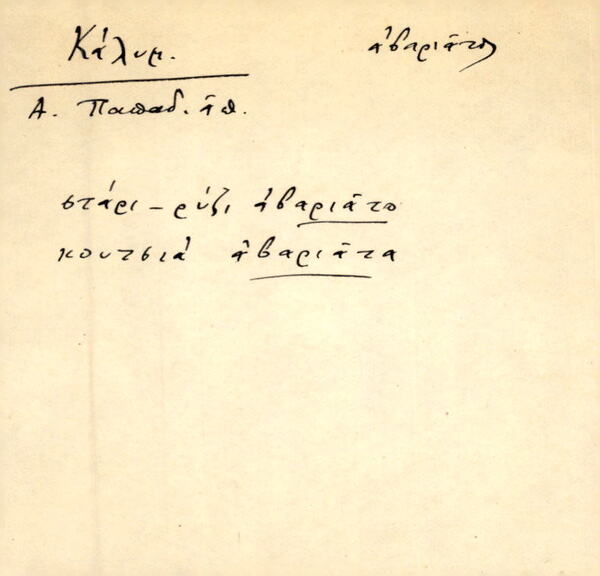 Κάλυμ.
ἀβαριᾶτος
Α. Παπαδ. ἀπ.
στάρι - ρύζι ἀβαριᾶτο
κουτσιά ἀβαριᾶτα